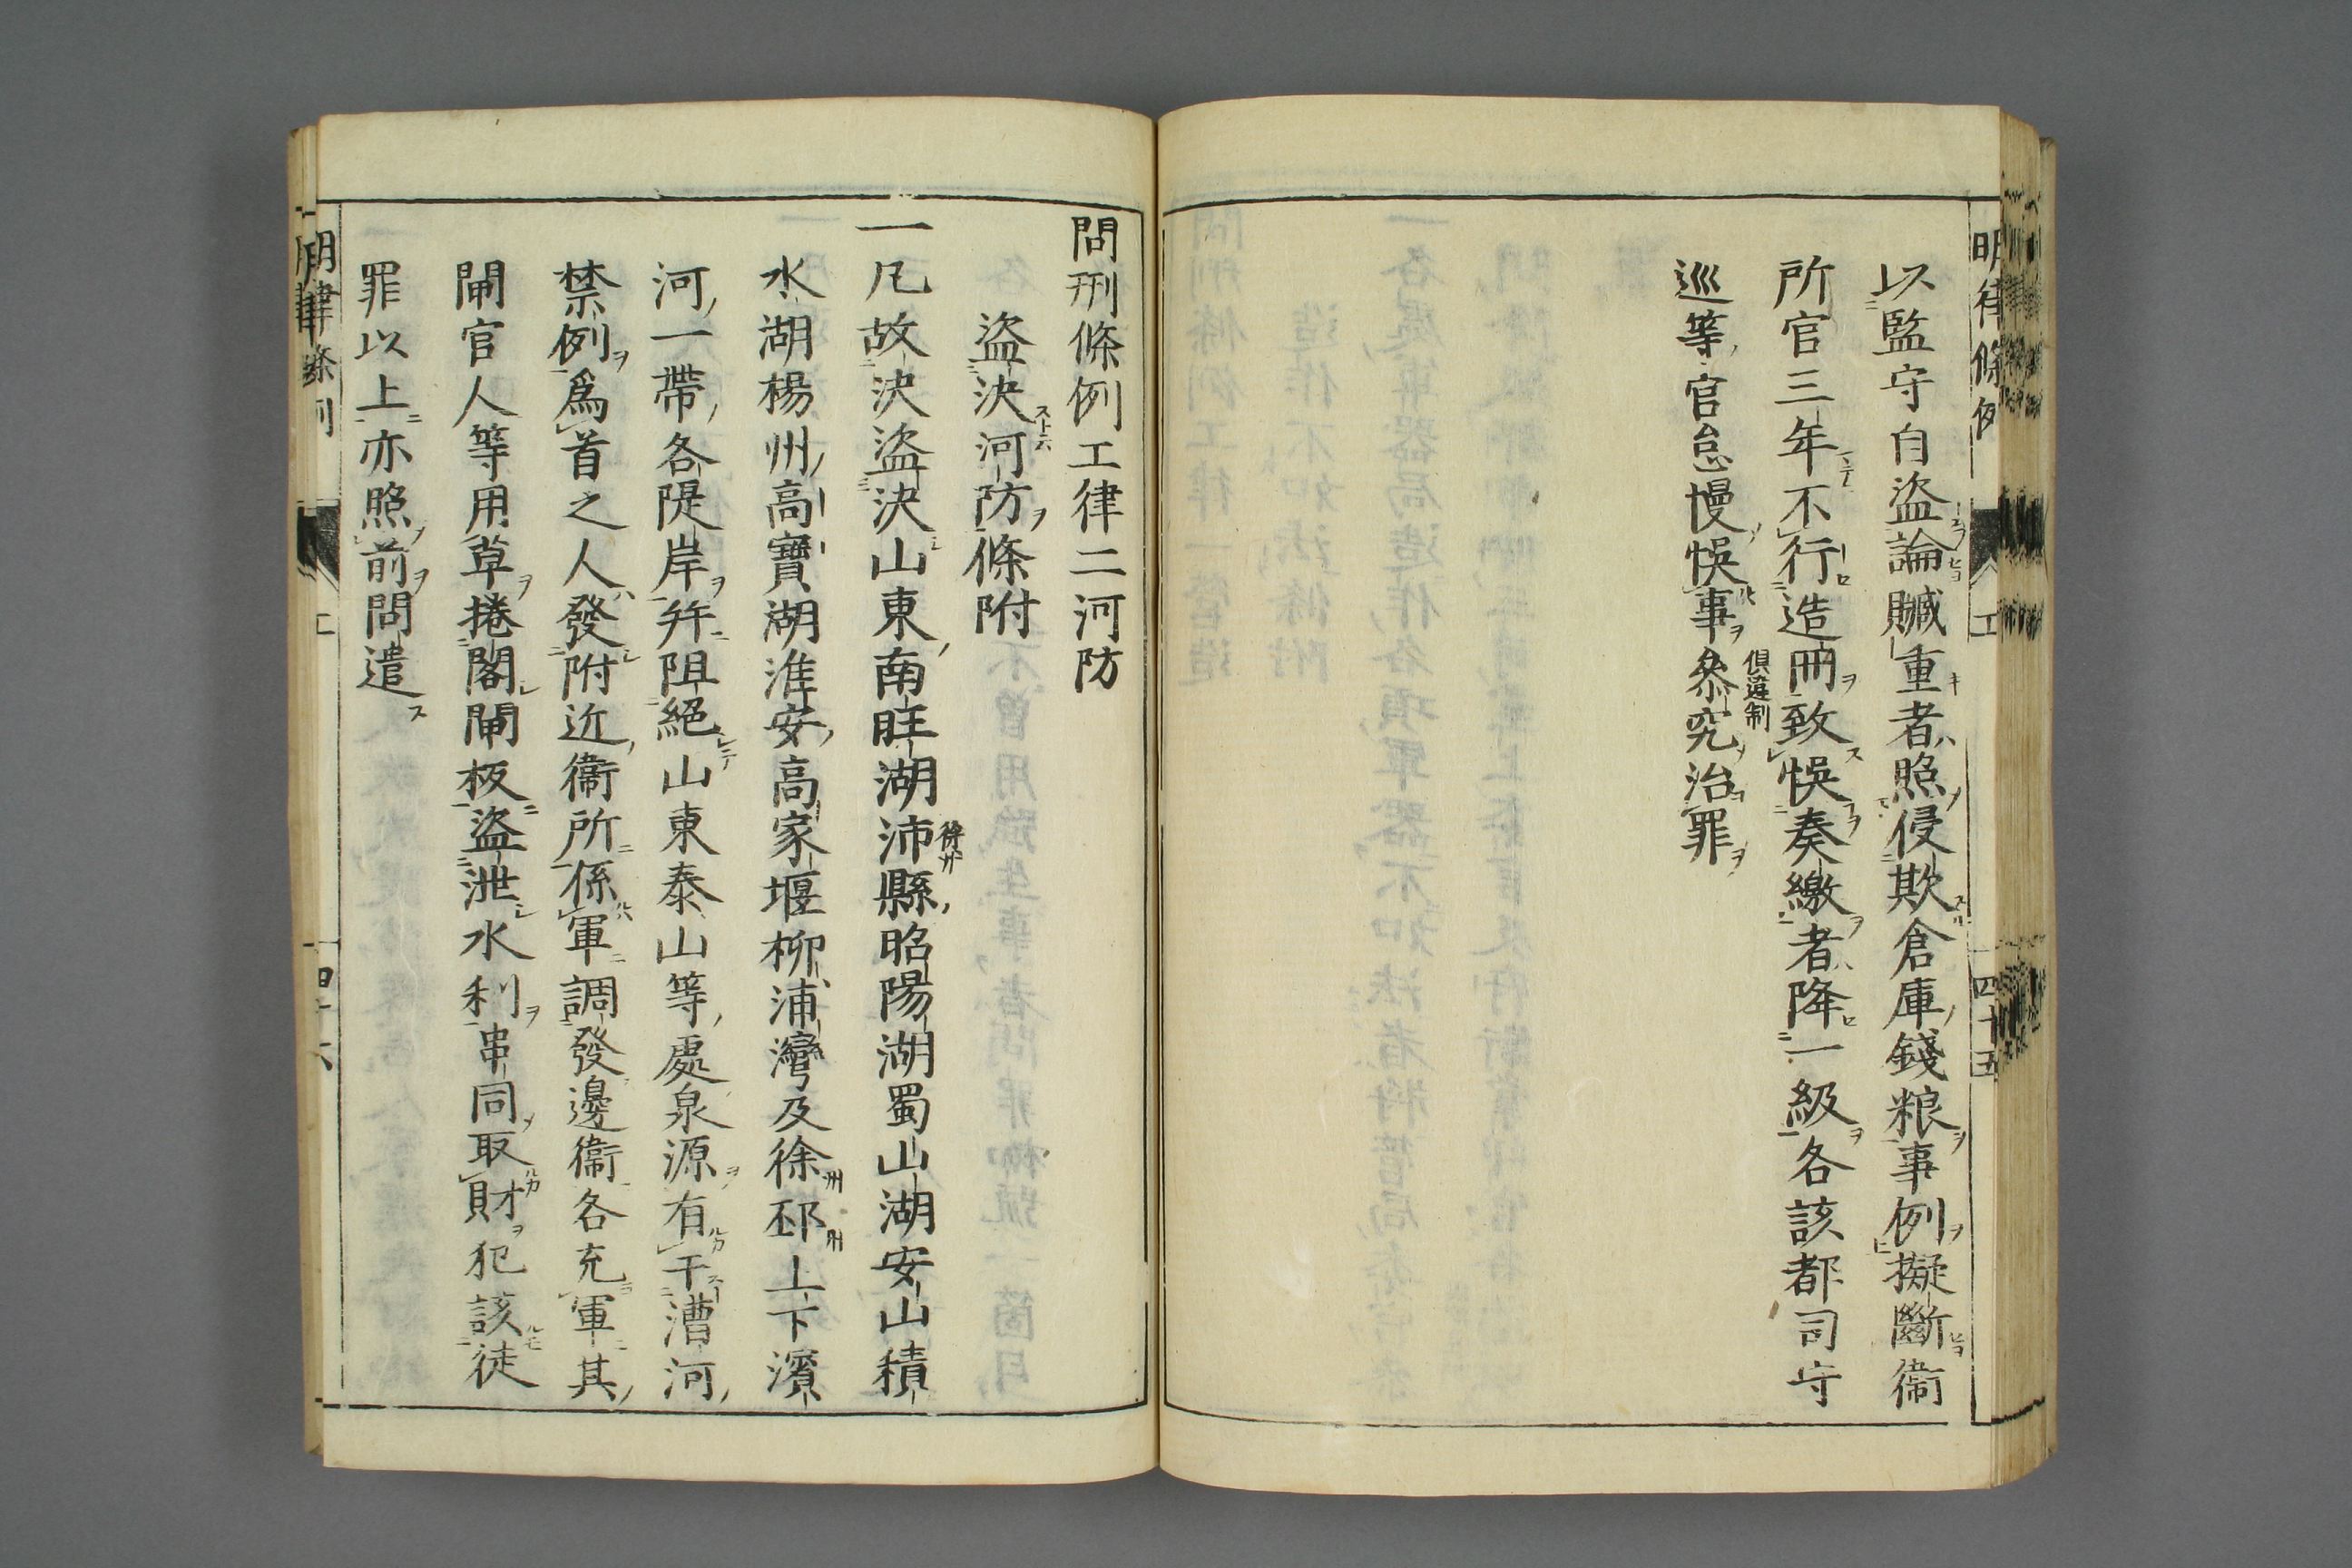 以監守自盗論贓重者照侵欺倉庫錢粮事例擬斷衞
所官三年不行造冊致悞奏繳者降一級各該都司守
巡等官怠慢悞事叅究治罪
俱違制
明律條例
工
四十五
問刑條例工律二河防
盗決河防條附
一凡故決盗決山東南旺湖沛縣昭陽湖蜀山湖安山積
徐州
水湖楊州高寶湖淮安高家堰柳浦灣及徐州邳州上下濱
河一帶各隄岸幷阻絕山東泰山等處泉源有干漕河
禁例爲首之人發附近衞所係軍調發邊衞各充軍其
閘官人等用草捲閣閘板盗泄水利串同取財犯該徒
罪以上亦照前問遣
明律條例
工
四十六